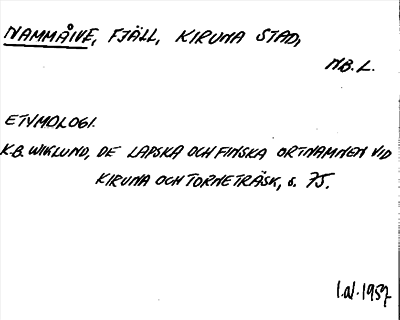 NAMMÅIVE, FJÄLL, KIRUNA STAD,
NB. L.
ETYMOLOGI.
K.B. WIKLUND, DE LAPSKA OCH FINSKA ORTNAMNEN VID
KIRUNA OCH TORNETRÄSK, s. 75.
1957